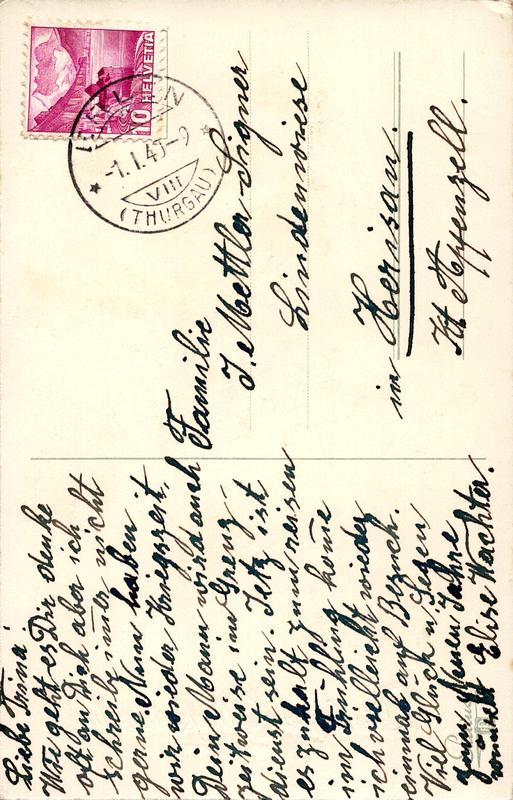 Liebe Anna!
Wie geht es Dir denke
oft an Dich aber ich
schreibe imer nicht
gerne. Nun haben
wir wieder Kriegszeit,
Dein Mann wird auch
zeitweise im Grenz-
dienst sein. Jetz ist
es zu kalt zum reisen
im Frühling kome
ich vielleicht wieder
einmal auf Besuch.
Viel Glück u. Segen
zum Neuen Jahre
wünscht Elise Wachter.
Familie
J. Mettler Signer
Lindenwiese
in Herisau.
Kt Appenzell.
HELVETIA
10
-1.I.40-9
VIII
(THURGAU)